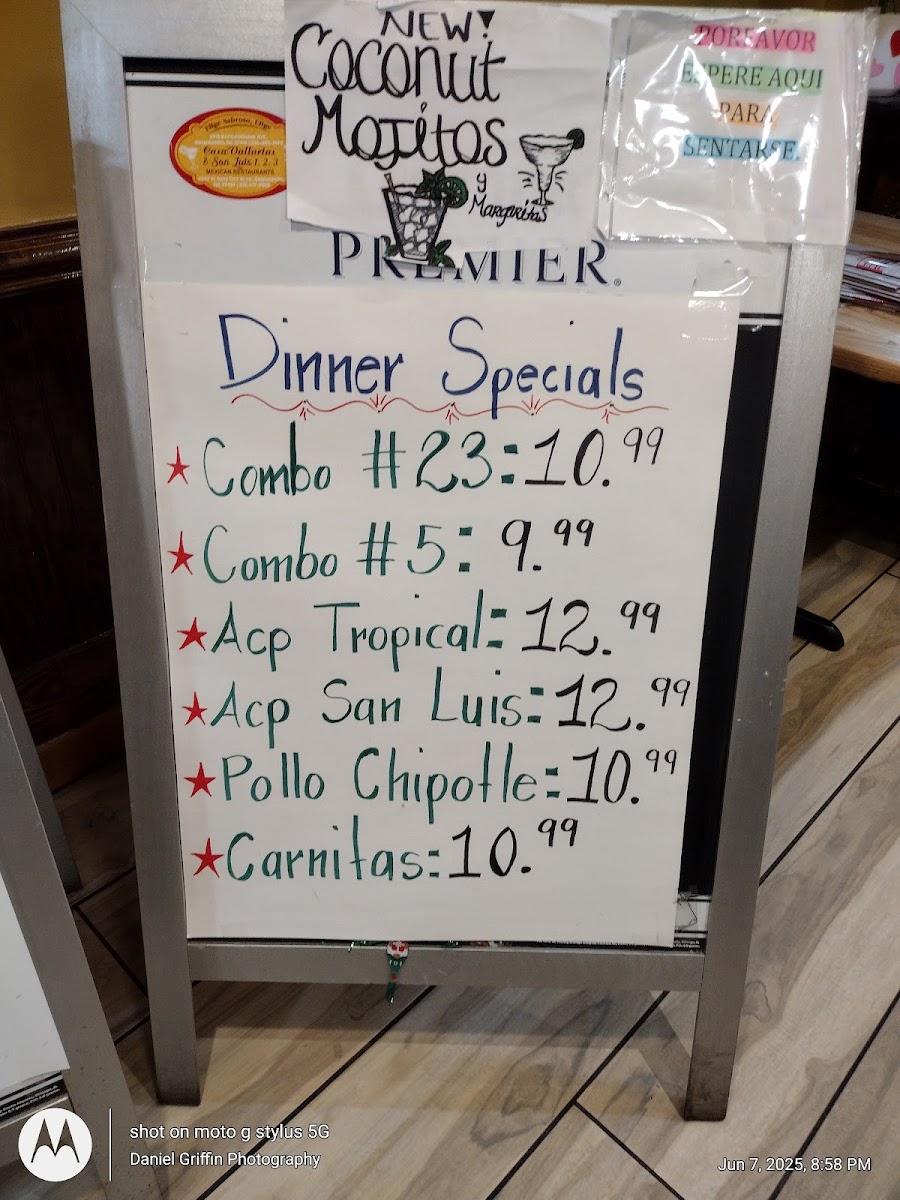 NEW!
Coconut
Mojitos
y
Margaritas
PORFAVOR
ESPERE AQUI
PARA
SENTARSE.
Casa Vallartas
& San Luis 1, 2, 3
MEXICAN RESTAURANTS
PREMIER®
Dinner Specials
Combo #23: 10.99
Combo #5: 9.99
Acp Tropical: 12.99
Acp San Luis: 12.99
Pollo Chipotle: 10.99
Carnitas: 10.99
shot on moto g stylus 5G
Daniel Griffin Photography
Jun 7, 2025, 8:58 PM